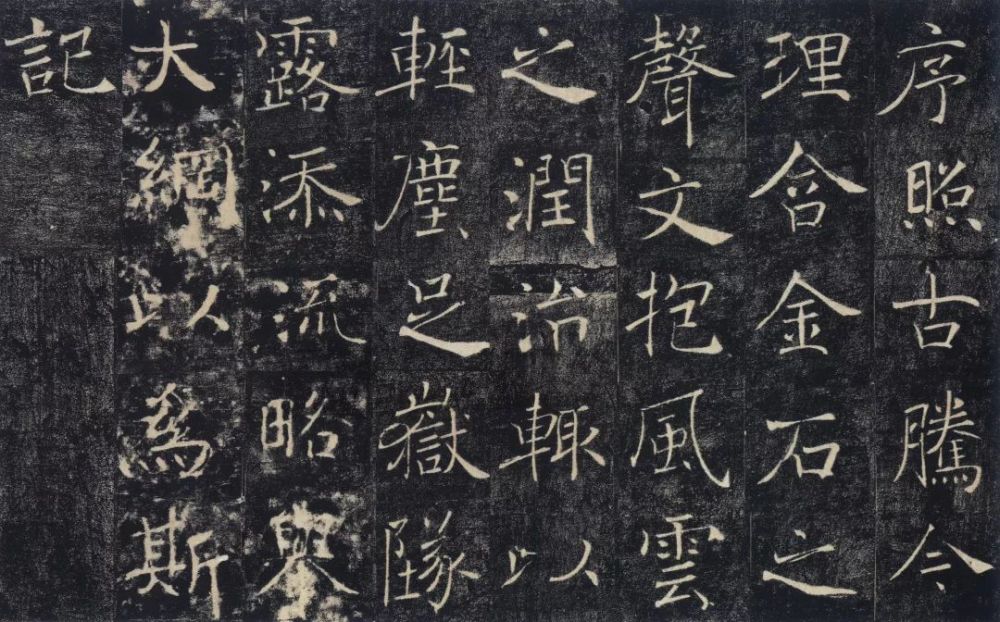 序照古騰今
理含金石之
聲文抱風雲
之潤治輙以
輕塵足嶽墜
露添流略舉
大綱以為斯
記